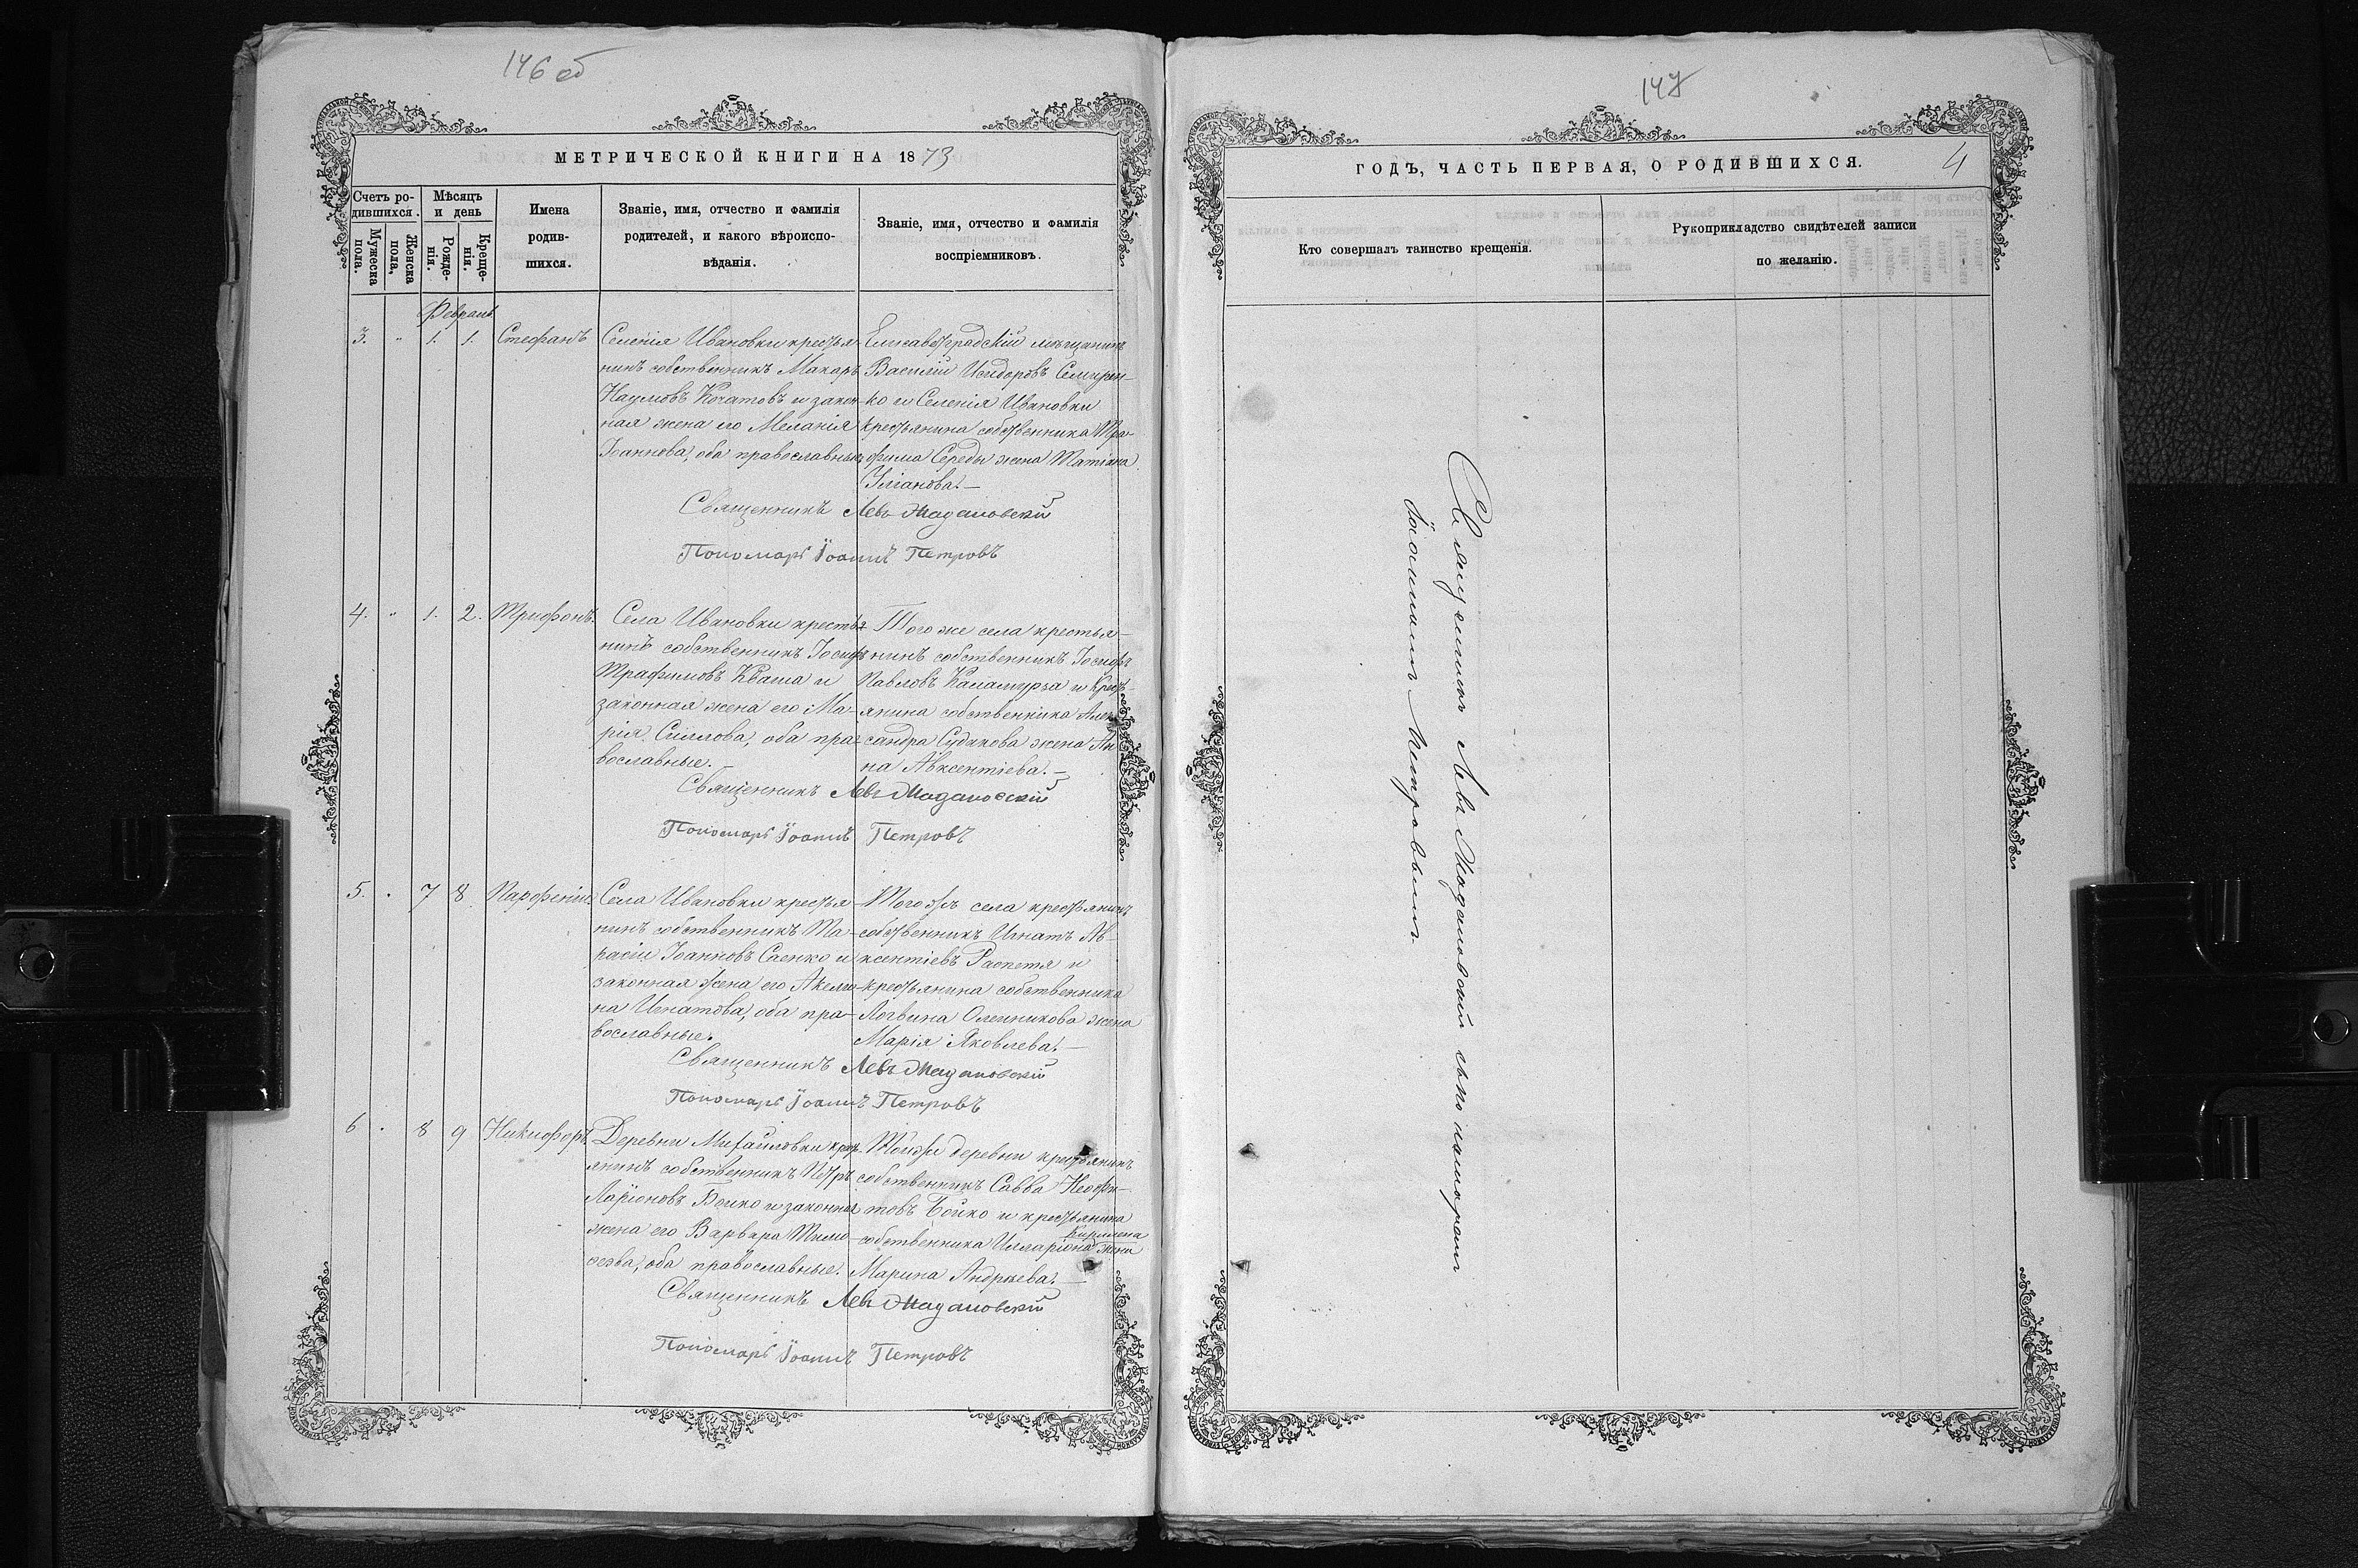 146 об
МЕТРИЧЕСКОЙ КНИГИ НА 1873
Счетъ ро-
дившихся.
Мужеска
пола.
Женска
пола,
Мѣсяцъ
и день
Рожде-
нія.
Креще-
нія.
Имена
родив-
шихся.
Званіе, имя, отчество и фамилія
родителей, и какого вѣроиспо-
вѣданія.
Званіе, имя, отчество и фамилія
воспріемниковъ.
Февраль
3. " 1. 1. Стефанъ
Селенія Ивановки крестья-
нинъ собственникъ Макаръ
Наумовъ и закон-
ная жена его Меланія
Іоаннова, оба православные
Елисаветградскій мѣщанинъ
Василій Исидоровъ Семирен-
ко и Селенія Ивановки
крестьянина собственника Тра-
фима Середы жена Татіана
Уліанова.—
Священникъ Левъ Мадановскій
Пономарь Іоаннъ Петровъ
4. " 1. 2. Трифонъ.
Села Ивановки крестья-
нинъ собственникъ Іосифъ
Трафимовъ Кваша и
законная жена его Ма-
рія оба пра-
вославные.—
Того же села крестья-
нинъ собственникъ Іосифъ
Павловъ Каламурза и крест-
янина собственника Алек-
сандра Судакова жена Ан-
на Авксентіева.—
Священникъ Левъ Мадановскій
Пономарь Іоаннъ Петровъ
5. " 7 8. Парфеній
Села Ивановки крестья-
нинъ собственникъ Та-
расій Іоанновъ Саенко и
законная жена его Акели-
на Игнатова, оба пра-
вославные.
Того жъ села крестьянинъ
собственникъ Игнатъ Ав-
ксентіевъ и
крестьянина собственника
Логвина Олейникова жена
Марія Яковлева.—
Священникъ Левъ Мадановскій
Пономарь Іоаннъ Петровъ
6 " 8 9 Никифоръ.
Деревни Михайловки крест-
янинъ собственникъ Петръ
Ларіоновъ Бойко и законная
жена его Варвара Тимо-
феева, оба православные.
Той же деревни крестьянинъ
собственникъ Савва Неофи-
товъ Бойко и крестьянина
собственника Илларіона жена
Марина Андреева.—
Священникъ Левъ Мадановскій
Пономарь Іоаннъ Петровъ
147
ГОДЪ, ЧАСТЬ ПЕРВАЯ, О РОДИВШИХСЯ.
4
Кто совершалъ таинство крещенія.
Рукоприкладство свидѣтелей записи
по желанію.
Священникъ Левъ Мадановскій съ пономаремъ
Іоанномъ Петровымъ.